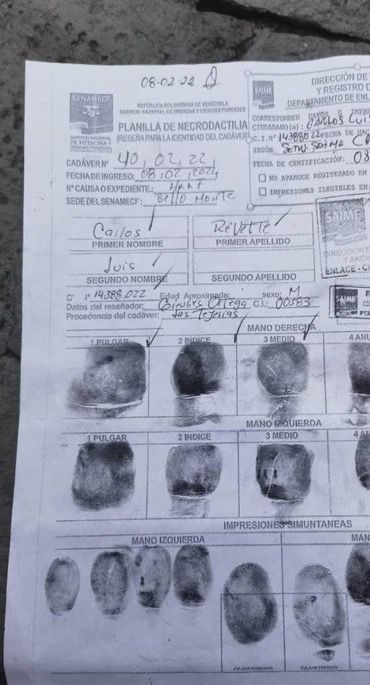 08-02-22
SENAMECF
SERVICIO NACIONAL
DE MEDICINA Y
CIENCIAS FORENSES
REPÚBLICA BOLIVARIANA DE VENEZUELA
SERVICIO NACIONAL DE MEDICINA Y CIENCIAS FORENSES
PLANILLA DE NECRODACTILIA
(RESEÑA PARA LA IDENTIDAD DEL CADÁVER)
CADÁVER Nº 40, 02, 22,
FECHA DE INGRESO: 08, 02, 2022
Nº CAUSA O EXPEDIENTE:
SEDE DEL SENAMECF: Bello Monte
DIRECCIÓN DE
Y REGISTRO D
DEPARTAMENTO DE ENL
CORRESPONDEN
CIUDADANO(a): CARLOS LUI
C.I. Nº 14388022 FECHA DE
SEGÚN
FECHA DE CERTIFICACIÓN: 08
NO APARECE REGISTRADO EN
IMPRESIONES ILEGIBLES EN
SAIME
Carlos
Revette
PRIMER NOMBRE
PRIMER APELLIDO
Luis
SEGUNDO NOMBRE
SEGUNDO APELLIDO
ENLACE-C
SAIME
C.I. Nº 14388.022 Edad Aproximada: sexo: M
Datos del reseñador: Ortega C.I.: 00583
Procedencia del cadáver: Las Tejerías
MANO DERECHA
1 PULGAR
2 INDICE
3 MEDIO
4 ANU
MANO IZQUIERDA
1 PULGAR
2 INDICE
3 MEDIO
4 AN
IMPRESIONES SIMUNTANEAS
MANO IZQUIERDA
MAN